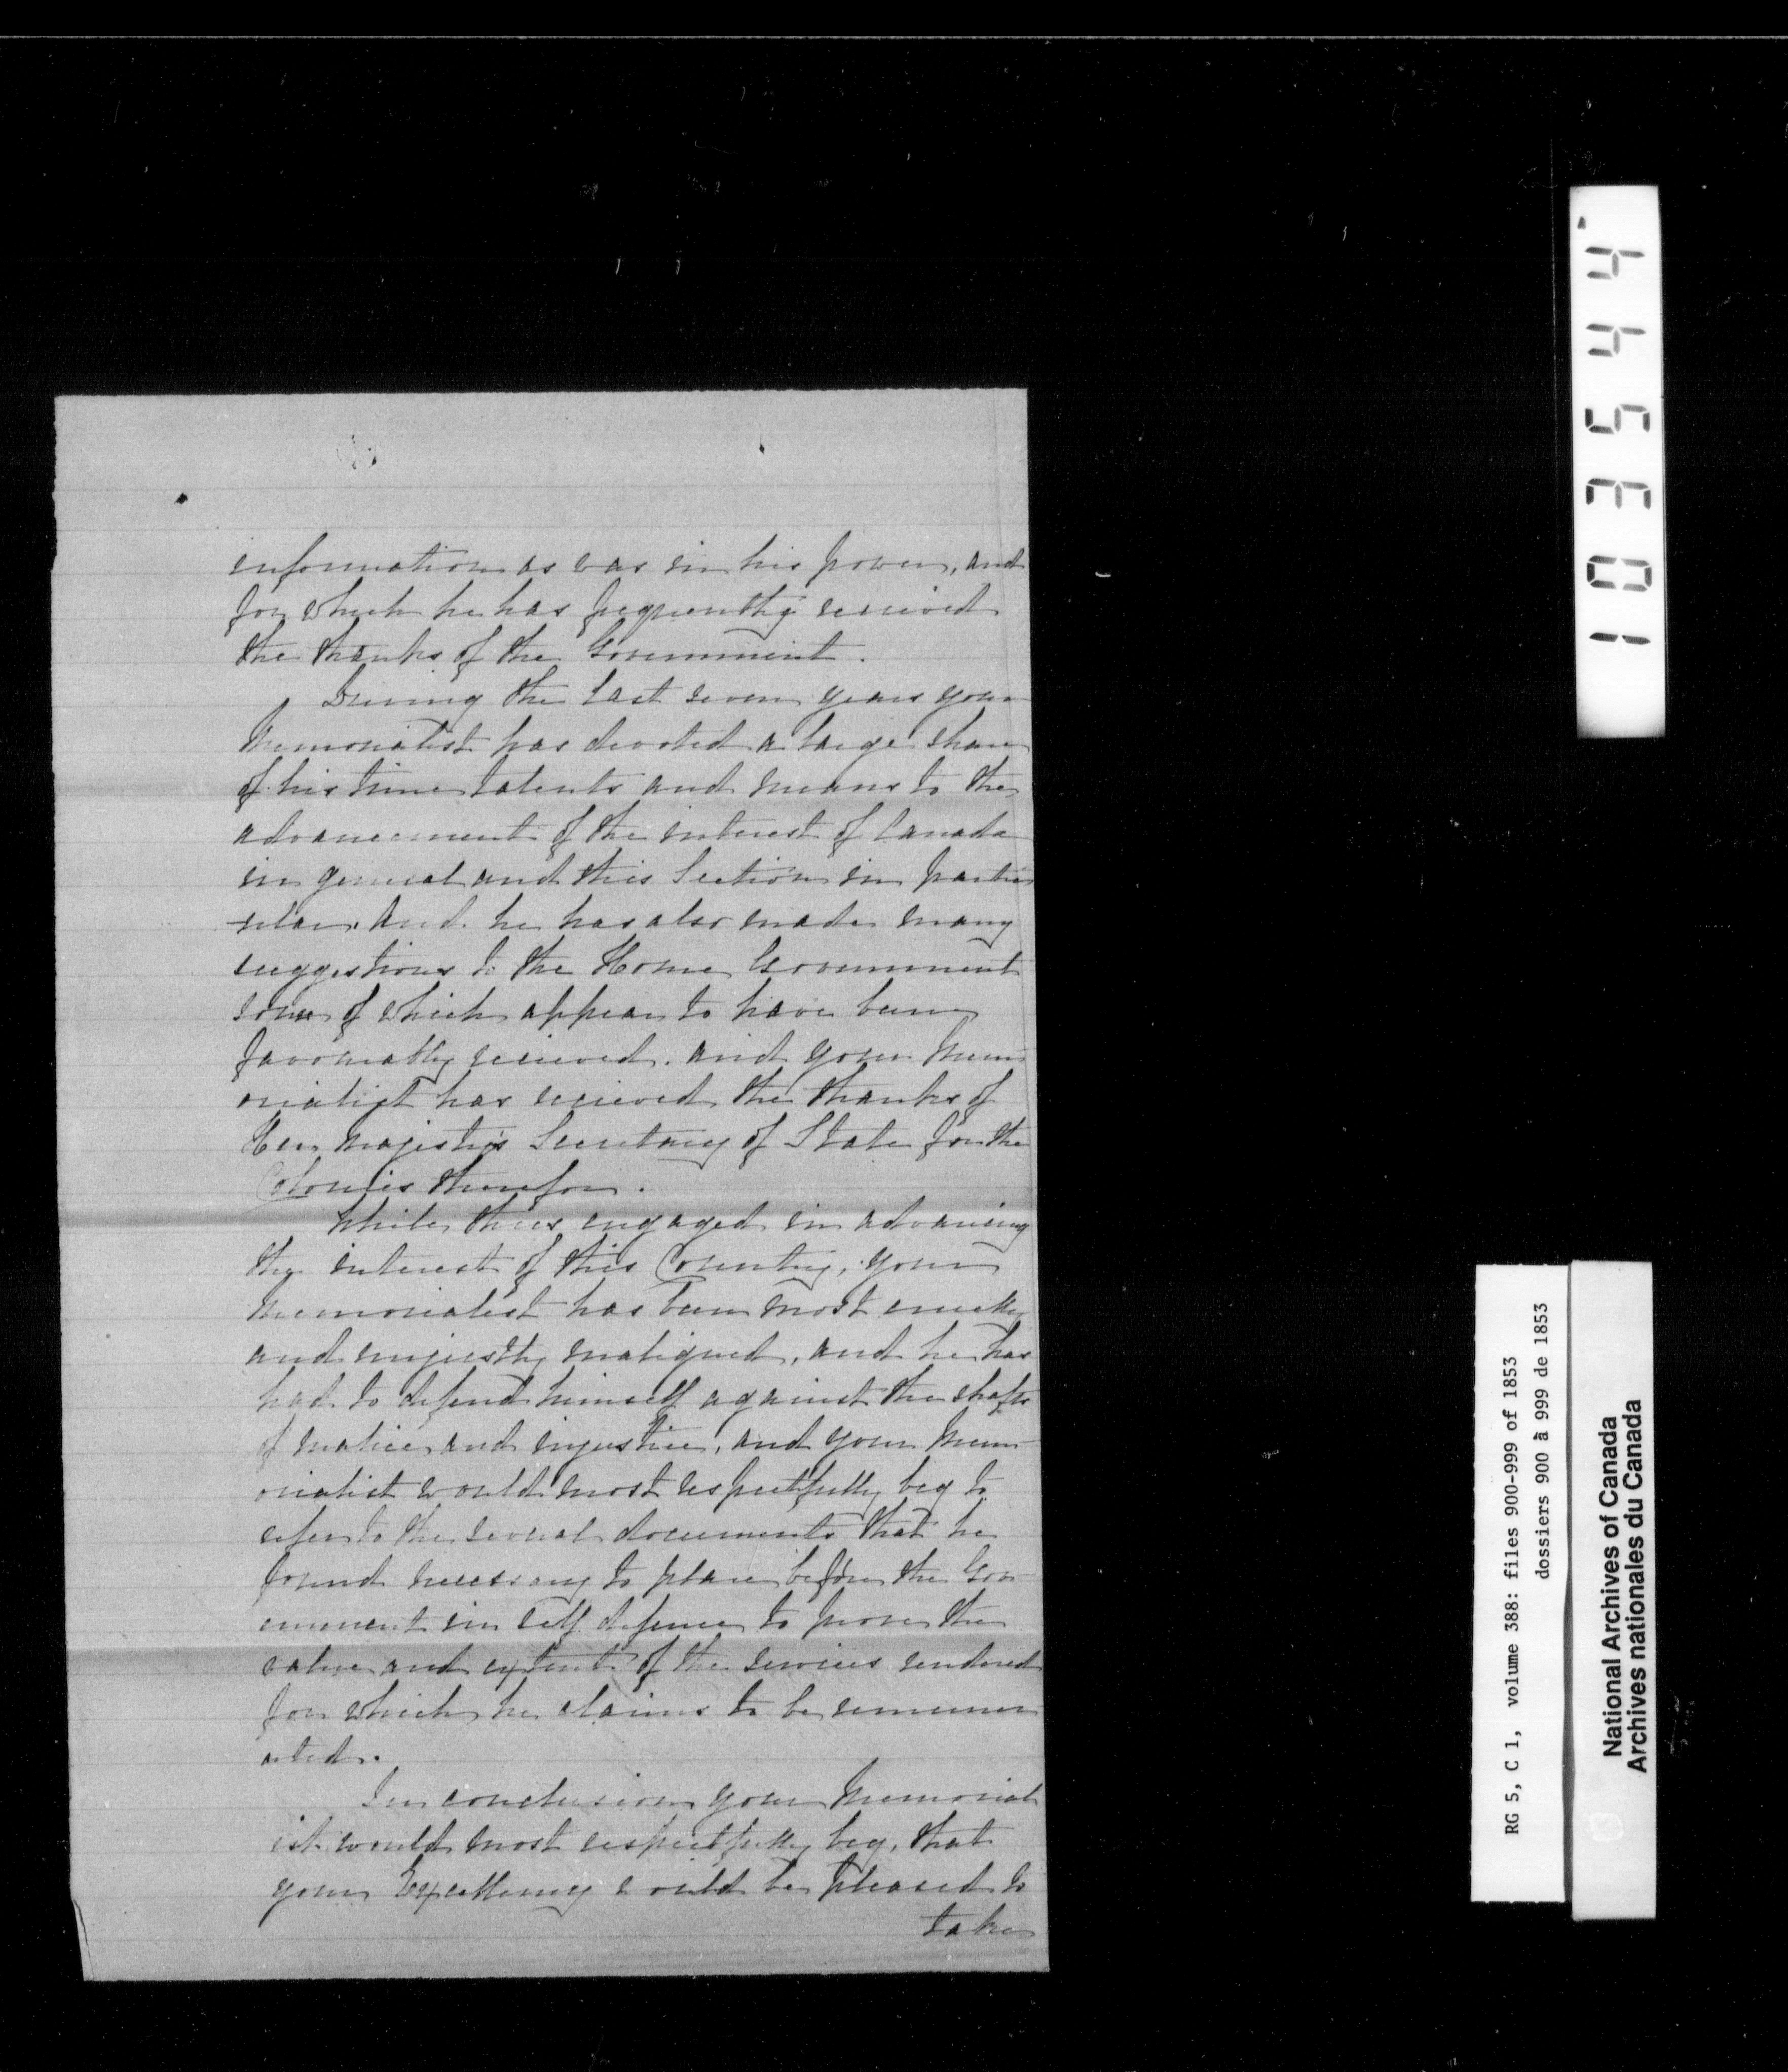 information as was in his power, and
for which he has frequently recieved
the thanks of the Government.
During the last seven years your
Memorialist has devoted a large share
of his time talents and means to the
advancement of the interest of Canada
in general and this Section in partic
-ular. And he has also made many
suggestions to the Home Government
some of which appear to have been
favorably recieved. and your Mem-
orialist has recieved the thanks of
Her Majesty's Secretary of State for the
Colonies therefor.
While thus engaged in advancing
the interest of this Country, your
Memorialist has been most cruelly
and unjustly maligned, and he has
had to defend himself against the shafts
of malice and injustice, and your Mem-
orialist would most respectfully beg to
refer to the several documents that he
found necessary to place before the Gov-
ernment in self defence to prove the
value and extent of the services rendered
for which he claims to be remuner
ated.
In conclusion your Memorial
ist would most respectfully beg, that
your Excellency would be pleased to
take
103544
RG 5, C 1, volume 388: files 900-999 of 1853
dossiers 900 à 999 de 1853
National Archives of Canada
Archives nationales du Canada